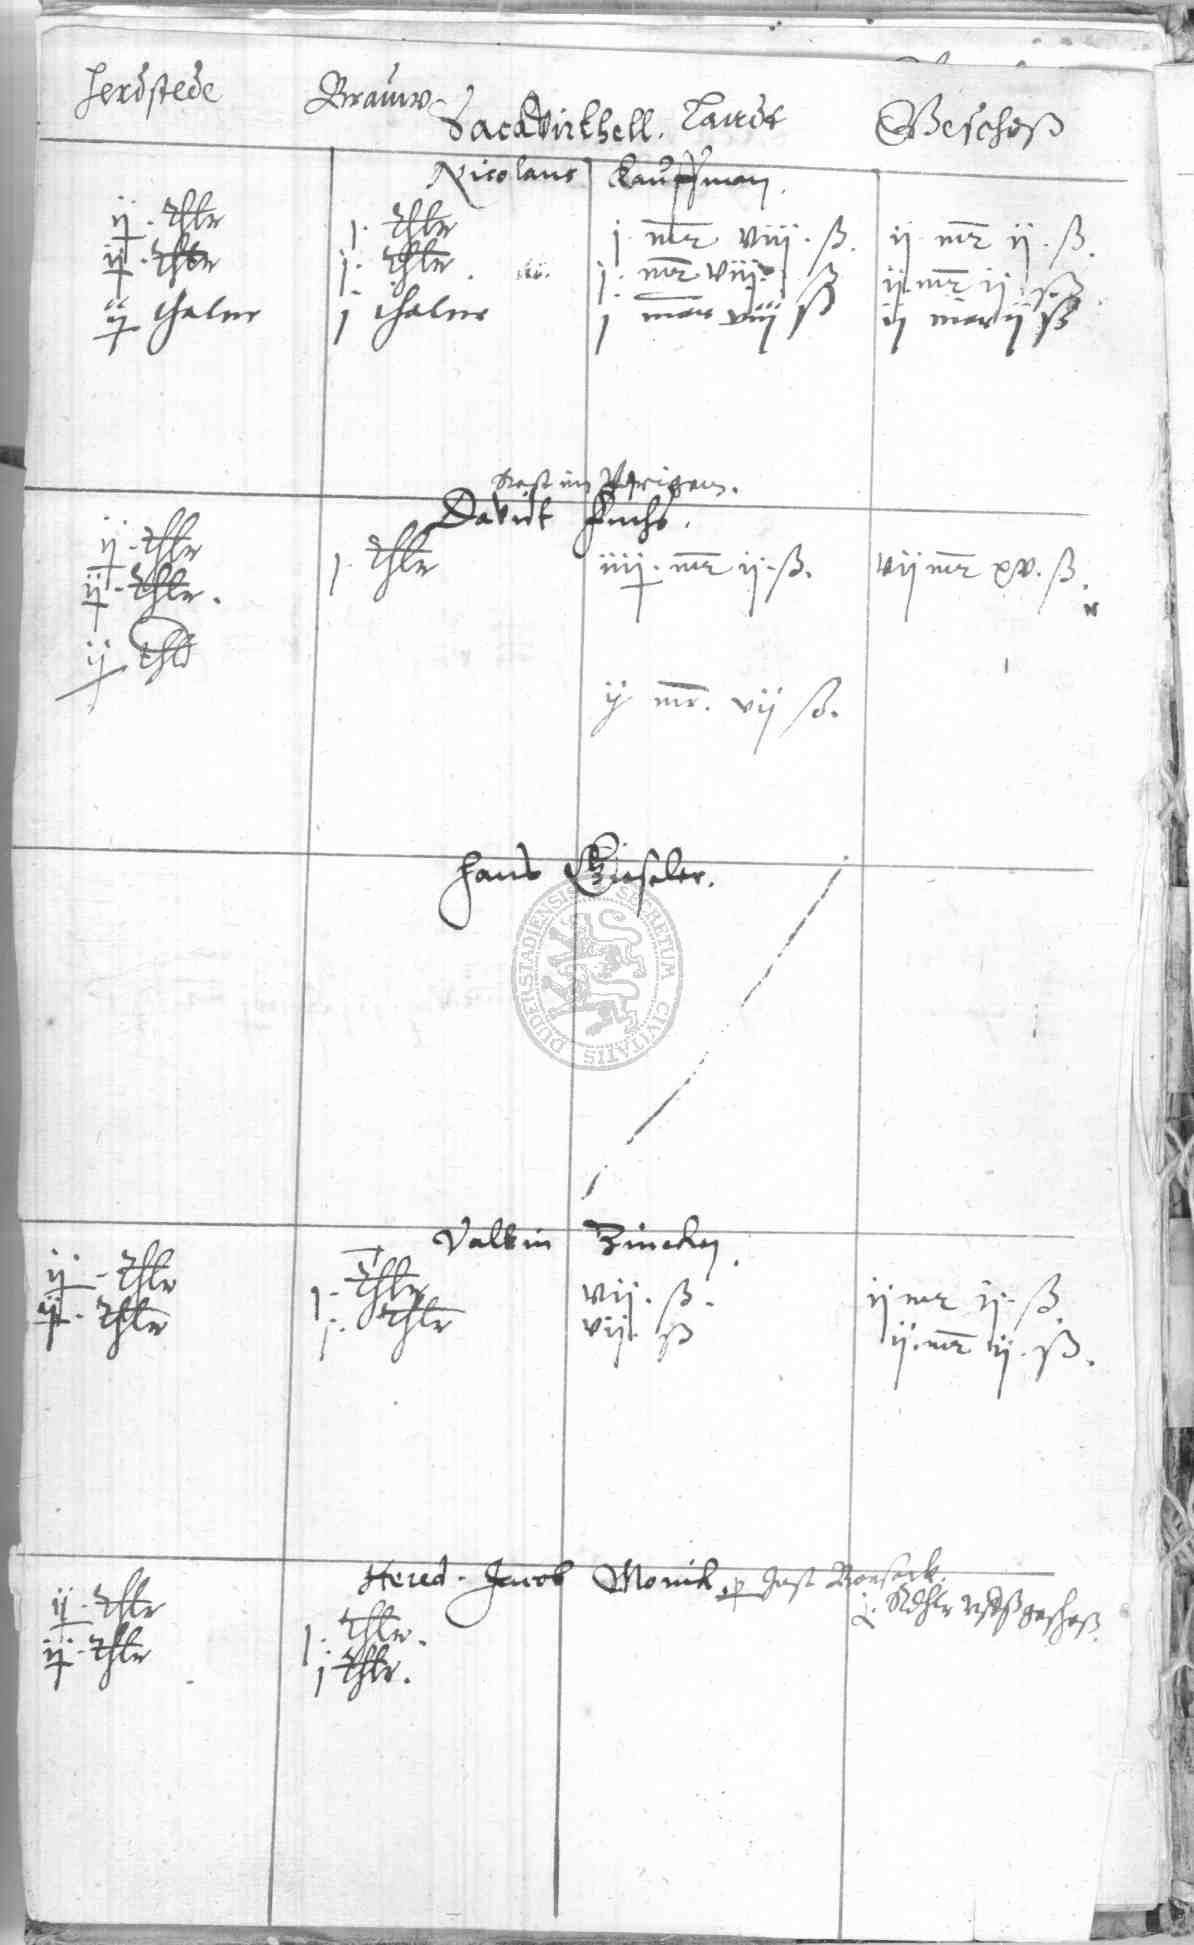 Herdstede Brauw- Sackvirthell. Landt Geschoß
Nicolaus Kauffman.
ij. thlr j. thlr j. mr viij. ß. ij mr ij. ß.
ij. thlr j. thlr. j. mr viij. ß ij mr ij. ß.
ij thaler j thaler j mar viij ß ij mar ij ß
Davidt Fuchs.
ij. thlr j. thlr iiij. mr ij. ß. vij mr xv. ß.
ij. thlr.
ij thlr
ij mr. vij ß.
Hans Gieseler.
SECRETUM CIVITATIS DUDERSTADIENSIS
Valtin Zincken.
ij - thlr j. thlr vij. ß. ij mr ij. ß
ij. thlr j. thlr vij. ß ij. mr ij. ß.
Hered. Jacob Monich
ij. thlr j. thlr.
ij. thlr j thlr.